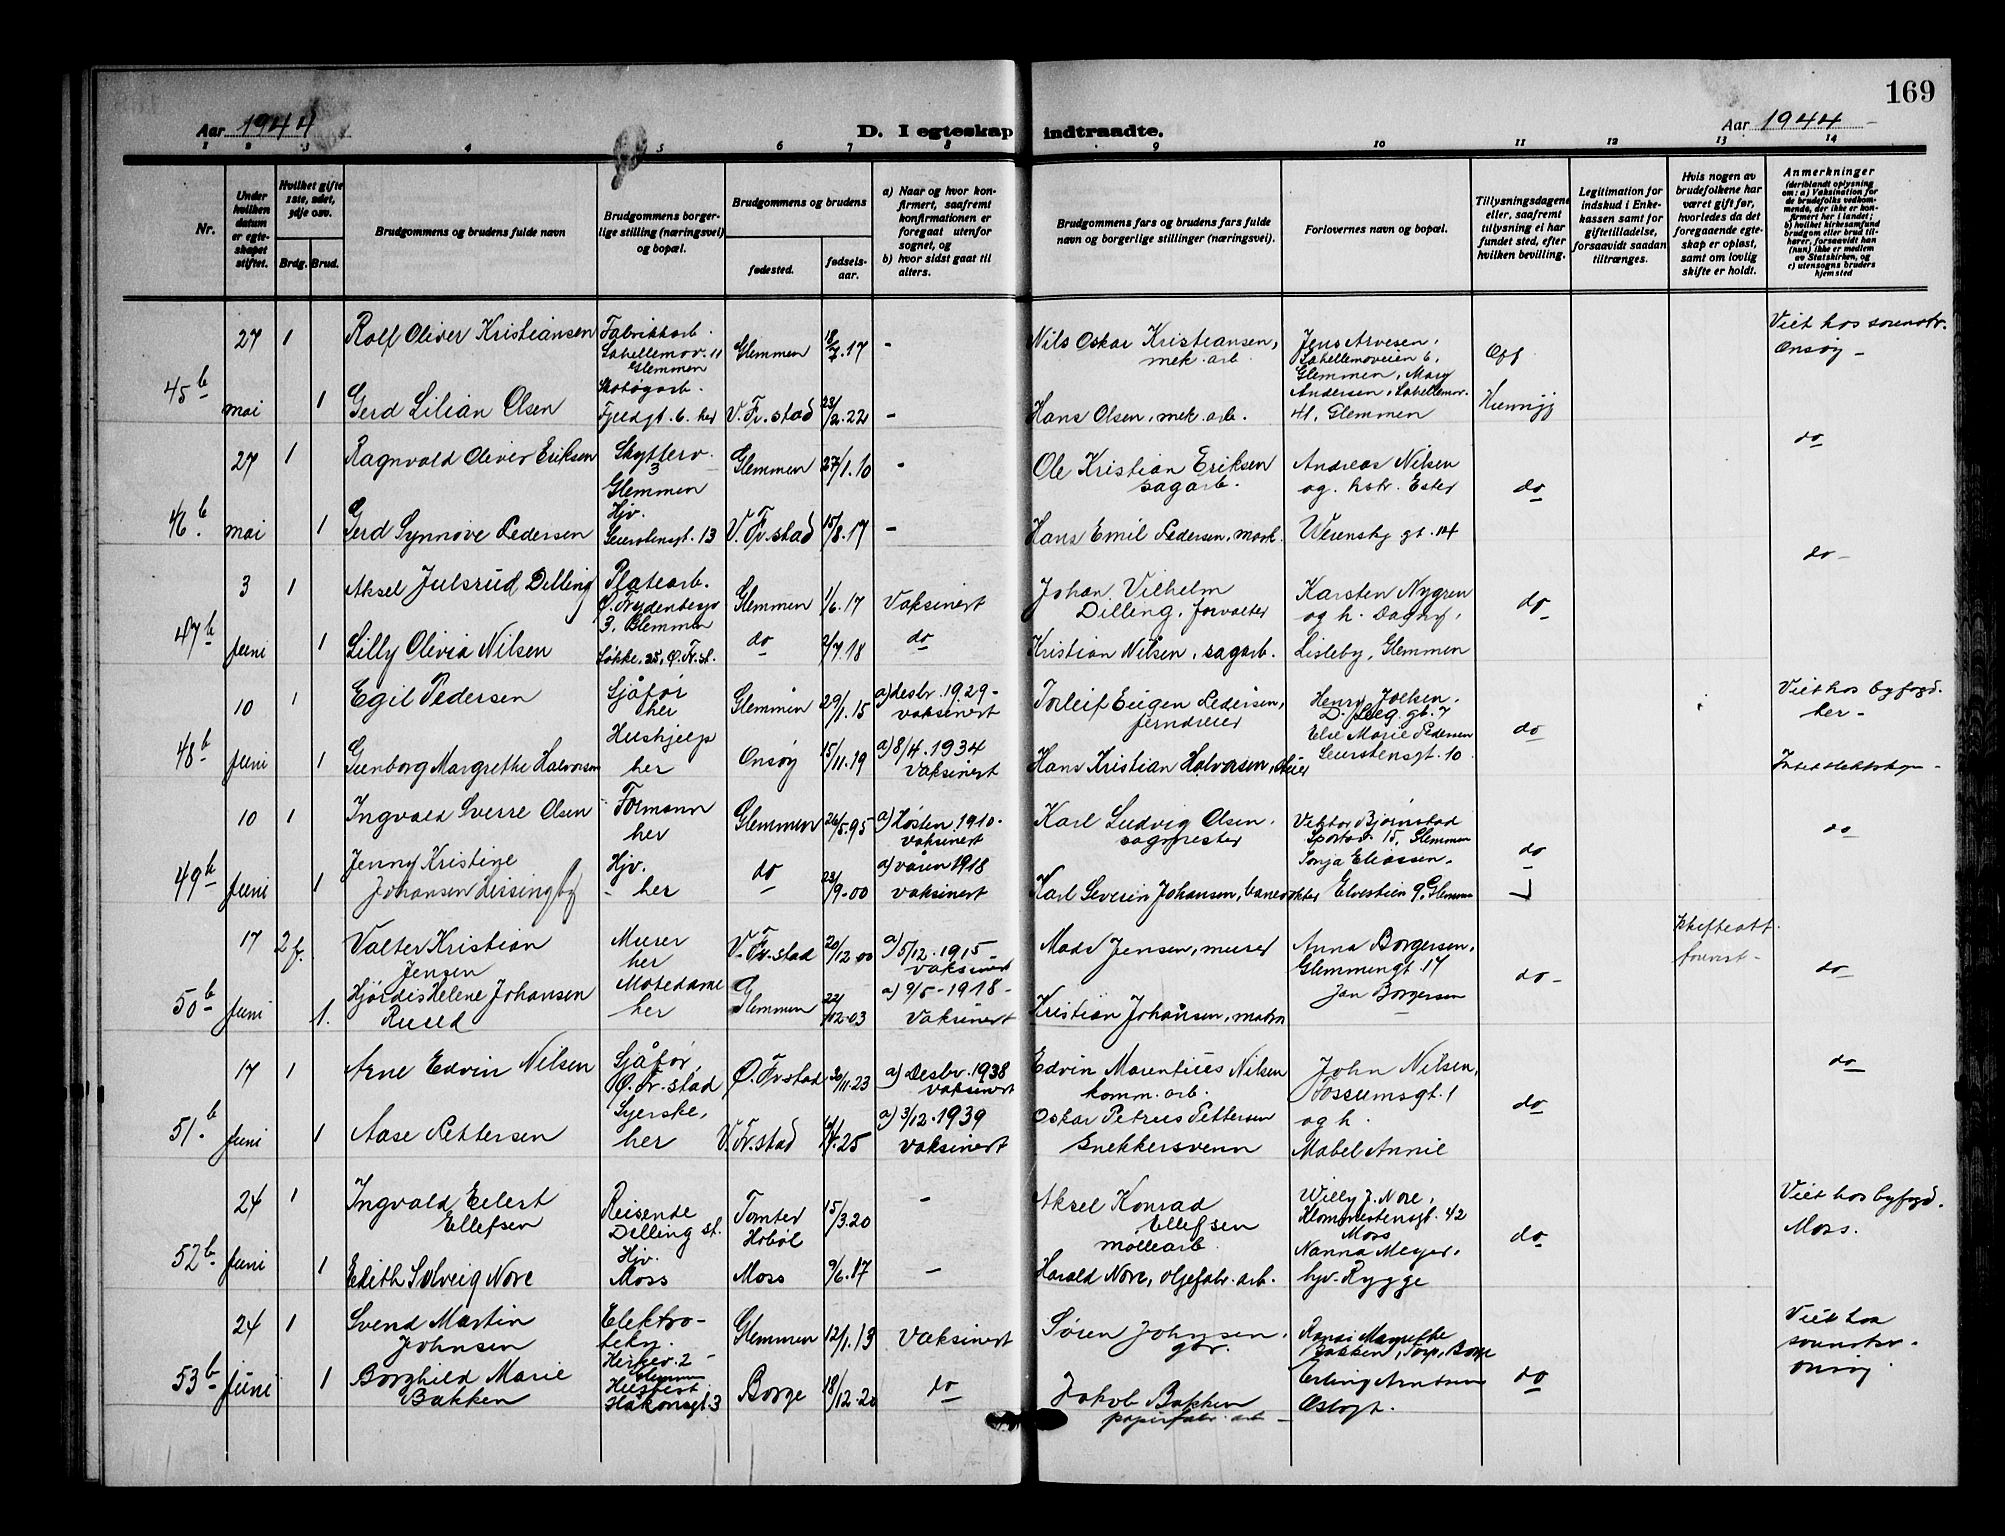 169
Aar 1944
D. I egteskap indtraadte.
Aar 1944
1 2 3 4 5 6 7 8 9 10 11 12 13 14
Nr.
Under hvilken datum er egteskapet stiftet.
Hvilket gifte 1ste, 2det, 3dje osv.
Brdg. Brud.
Brudgommens og brudens fulde navn
Brudgommens borgerlige stilling (næringsvei) og bopæl.
Brudgommens og brudens
fødested.
fødselsaar.
a) Naar og hvor konfirmert, saafremt konfirmationen er foregaat utenfor sognet, og
b) hvor sidst gaat til alters.
Brudgommens fars og brudens fars fulde navn og borgerlige stillinger (næringsvei).
Forlovernes navn og bopæl.
Tillysningsdagene eller, saafremt tillysning ei har fundet sted, efter hvilken bevilling.
Legitimation for indskud i Enkekassen samt for giftetilladelse, forsaavidt saadan tiltrænges.
Hvis nogen av brudefolkene har været gift før, hvorledes da det foregaaende egteskap er opløst, samt om lovlig skifte er holdt.
Anmerkninger
(deriblandt oplysning om: a) Vaksination for de brudefolks vedkommende, der ikke er konfirmert her i landet; b) hvilket kirkesamfund brudgom eller brud tilhører, forsaavidt han (hun) ikke er medlem av Statskirken, og c) utensogns bruders hjemsted
45 b
27 mai
1 Rolf Oliver Kristiansen
Fabrikkarb.
Glemmen
Glemmen 18/7.17 -
Nils Oskar Kristiansen, mek. arb.
Jens Arvesen,
Glemmen, Mary
Andersen,
41, Glemmen
Off
Viet hos
Onsøy -
1 Gerd Lilian Olsen
6. her
V. Fr. stad 23/2.22 -
Hans Olsen, mek. arb.
46 b
27 mai
1 Ragnvald Oliver Eriksen
3
Glemmen
Glemmen 27/1.10 -
Ole Kristian Eriksen
sagarb.
Andreas Nilsen
og hstr. Ester
gt. 14
do
do
1 Gerd Synnøve Pedersen
Hjv.
13
V. Fr. stad 15/8.17 -
Hans Emil Pedersen,
47 b
3 juni
1 Aksel Julsrud Dilling
Platearb.
3, Glemmen
Glemmen 1/6.17 Vaksinert
Johan Vilhelm
Dilling, forvalter
Karsten Nygren
og h. Dagny,
Lisleby, Glemmen
do
do -
1 Lilly Olivia Nilsen
Løkke. 25, Ø. Fr. st.
do 2/7.18 do
Kristian Nilsen, sagarb.
48 b
10 juni
1 Egil Pedersen
Sjåfør
her
Glemmen 29/1.15
a) desbr. 1929 -
vaksinert
Torleif Eugen Pedersen,
jerndreier
Henry
gt. 7
Else Marie Pedersen
10
do
Viet hos byfogd.
her -
1 Gunborg Margrethe Halvorsen
Hushjelp
her
Onsøy 15/11.19
a) 8/4. 1934
Vaksinert
Hans Kristian Halvorsen,
49 b
10 juni
1 Ingvald Sverre Olsen
Formann
her
Glemmen 26/5.95
a) Høsten 1910.
vaksinert
Karl Ludvig Olsen,
sagmester
Viktor Bjørnstad
15, Glemmen
Sonja Eliassen,
Elvestien 9, Glemmen
do
do
1 Jenny Kristine
Johansen Kissingby
Hjv.
- her
do 23/9-00
a) våren 1918
vaksinert
Karl Severin Johansen, banevokter
50 b
17 juni
2 f. Valter Kristian
Jensen
Murer
her
V. Fr. stad 20/12.00
a) 5/12. 1915 -
vaksinert
Mads Jensen, murer
Anna Borgersen,
Glemmengt. 17
Jan Borgersen
do -
Skifteatt.
do
1. Hjørdis Helene Johansen
Ruud
Motedame
her
Glemmen 22/12-03
a) 9/5 - 1918 -
Vaksinert
Kristian Johansen,
51. b
17 juni
1 Arne Edvin Nilsen
Sjåfør,
Ø. Fr. stad
Ø. Frstad 30/11.23
a) Desbr. 1938
vaksinert
Edvin Marentius Nilsen
komm. arb.
John Nilsen,
Fossumsgt. 1
og h.
Mabel Annie
do
do
1 Aase Pettersen
Syerske,
her
V. Fr. stad
a) 3/12. 1939
vaksinert
Oskar Petrus Pettersen
Snekkersvenn
52 b
24 juni
1 Ingvald
Ellefsen
Reisende
Dilling st.
Tomter
Hobøl
15/3.20 -
Aksel Konrad
Ellefsen
møllearb.
Willy J. Nore,
42
Moss
Nanna Meyer,
hjv. Rygge
do
Viet hos byfogd.
Moss.
1 Edith Solveig Nore
Hjv.
Moss
Moss 9/6.17 -
Harald Nore, oljefabr. arb.
53 b
24 juni
1 Svend Martin
Johnsen
Elektro-
tekn.
2 -
Glemmen
Glemmen 12/1.13 Vaksinert
Søren Johnsen,
gbr.
Ragni Margrethe
Bakken, Torp, Borge
Erling Arntsen
do
Viet hos
Onsøy
1 Borghild Marie
Bakken
Husbest.
Håkonsgt. 3
Borge 18/12.20 do
Jakob Bakken
papirfabr. arb -